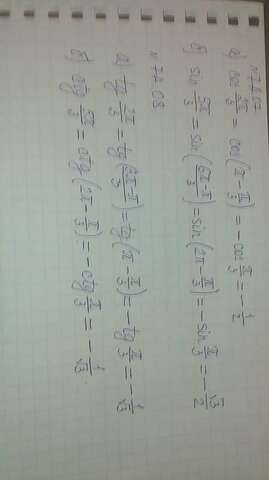 а) cos 2π/3 = cos(π - π/3) = -cos π/3 = -1/2
б) sin 5π/3 = sin(6π-π/3) = sin(2π - π/3) = -sin π/3 = -√3/2
а) tg 2π/3 = tg(3π-π/3) = tg(π - π/3) = -tg π/3 = -1/√3
б) ctg 5π/3 = ctg(2π - π/3) = -ctg π/3 = -1/√3